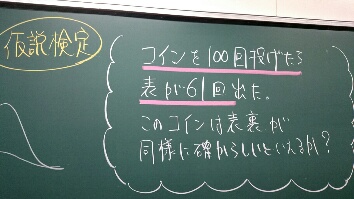 仮説検定
コインを100回投げたら
表が61回出た。
このコインは表裏が
同様に確からしいといえるか?